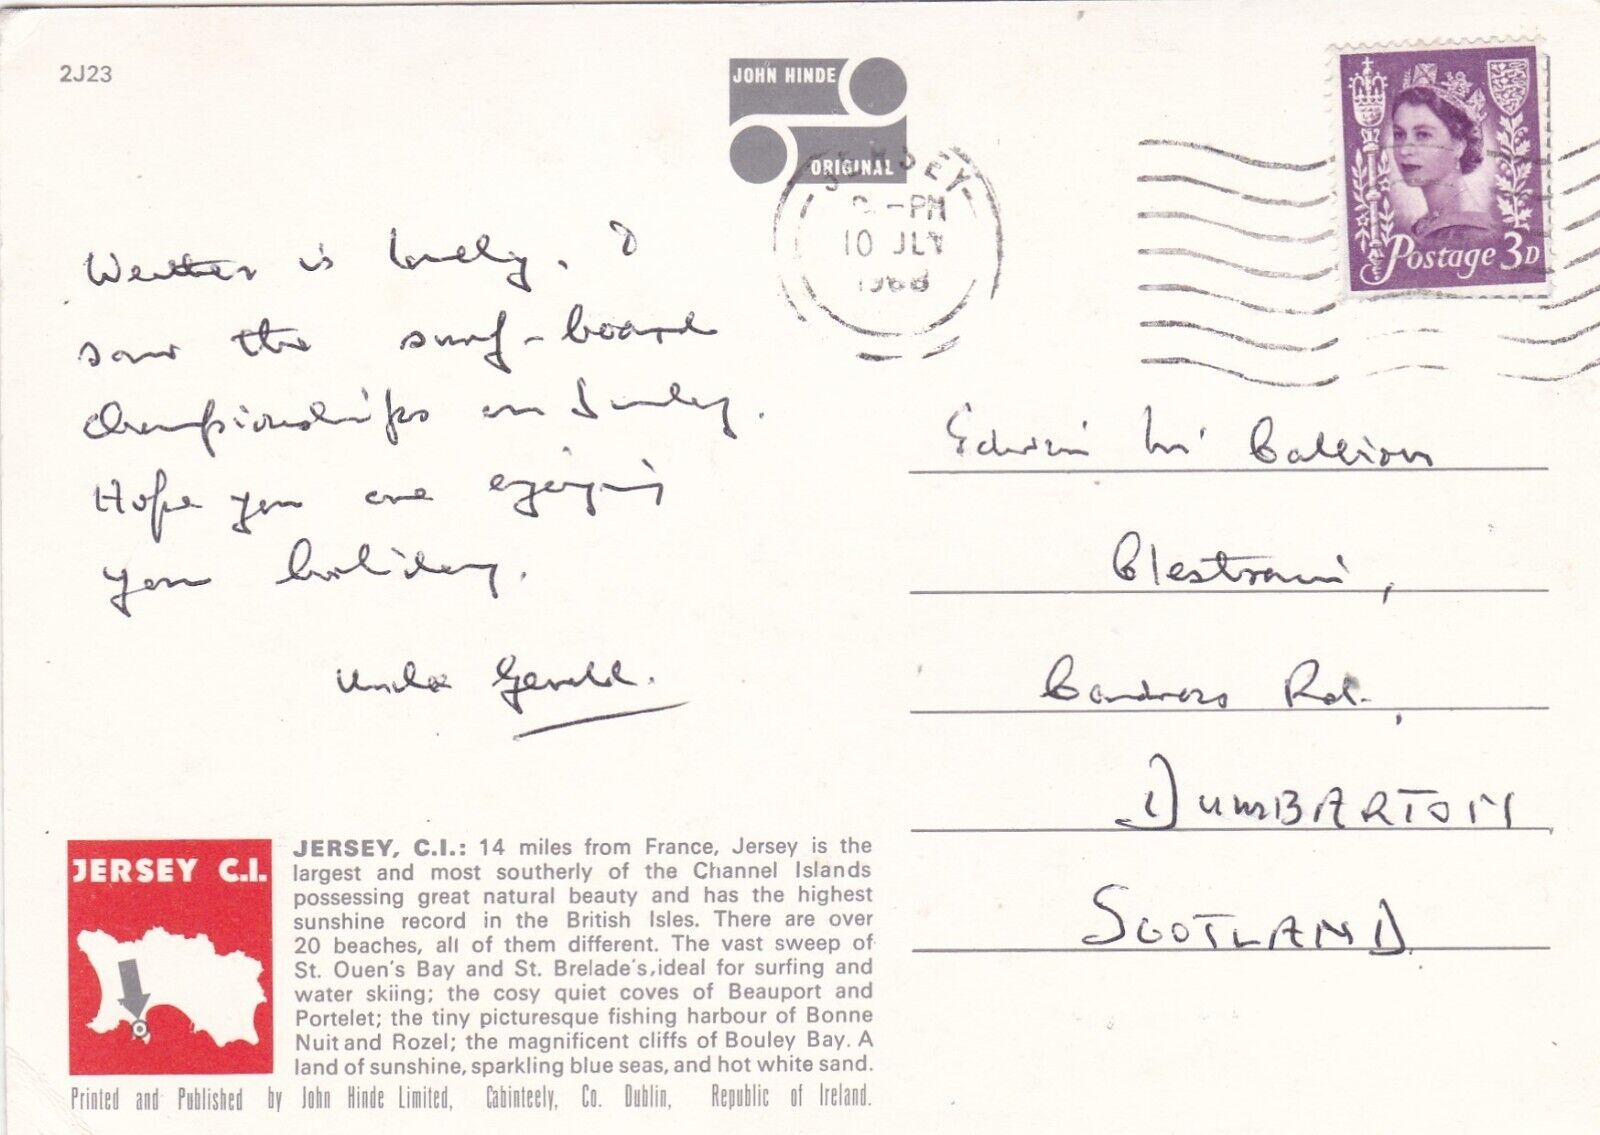 2J23
JOHN HINDE
ORIGINAL
JERSEY
-PM
10 JLY
1968
Postage 3D
Weather is lovely. I
saw the surf-board
championships on Sunday.
Hope you are enjoying
your holiday.
Uncle Gerald.
Edwin Mc
Cardross Rd.,
DUMBARTON
SCOTLAND
JERSEY C.I.
JERSEY, C.I.: 14 miles from France, Jersey is the
largest and most southerly of the Channel Islands
possessing great natural beauty and has the highest
sunshine record in the British Isles. There are over
20 beaches, all of them different. The vast sweep of
St. Ouen's Bay and St. Brelade's, ideal for surfing and
water skiing; the cosy quiet coves of Beauport and
Portelet; the tiny picturesque fishing harbour of Bonne
Nuit and Rozel; the magnificent cliffs of Bouley Bay. A
land of sunshine, sparkling blue seas, and hot white sand.
Printed and Published by John Hinde Limited, Cabinteely, Co. Dublin, Republic of Ireland.